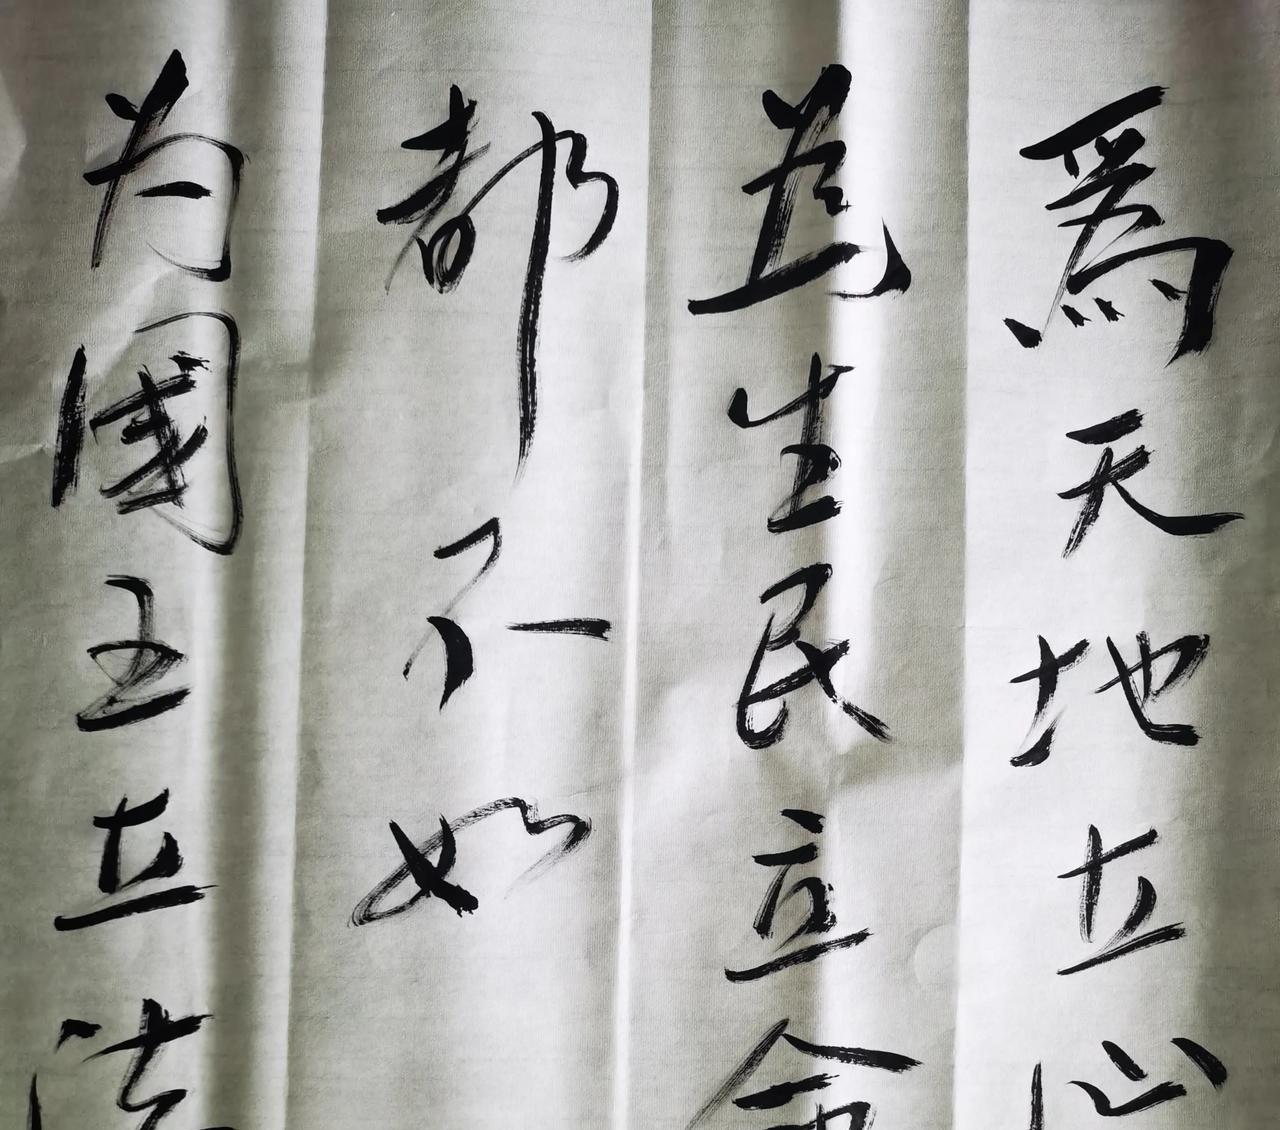 爲天地立心
爲生民立命
都不如
为國王立法